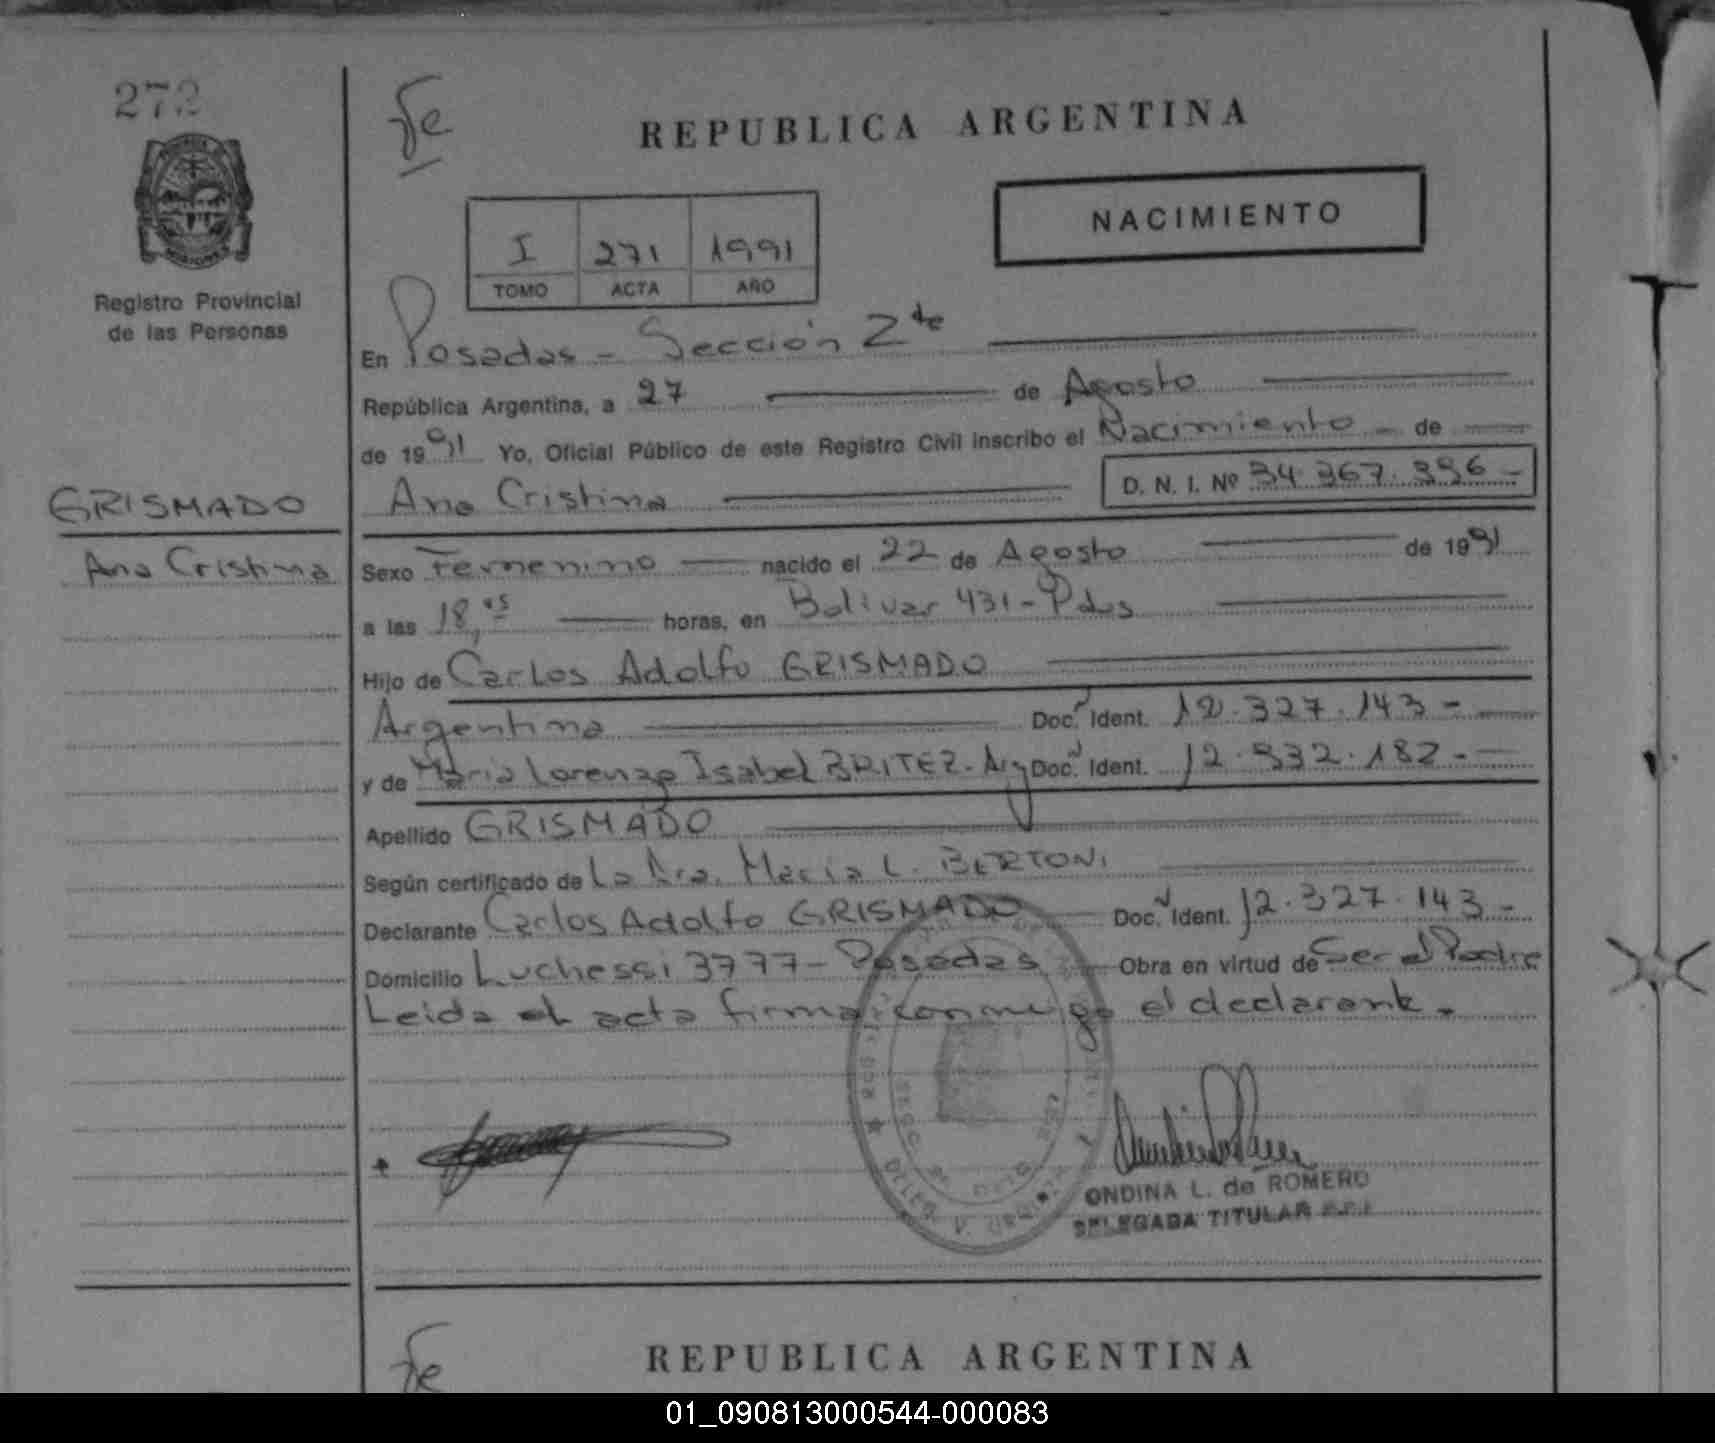 272
Registro Provincial
de las Personas
GRISMADO
Ana Cristina
Fe
REPUBLICA ARGENTINA
NACIMIENTO
I 271 1991
TOMO ACTA AÑO
En Posadas - Sección 2da
República Argentina, a 27 de Agosto
de 1991 Yo, Oficial Público de este Registro Civil inscribo el Nacimiento - de
Ana Cristina D. N. I. Nº 34.367.396 -
Sexo Femenino nacido el 22 de Agosto de 1991
a las 18, horas, en Bolivar 431 - Pdas
Hijo de Carlos Adolfo GRISMADO
Argentina Doc. Ident. 12.327.143 -
y de Maria Lorenza Isabel BRITEZ. Arg Doc. Ident. 12.932.182 -
Apellido GRISMADO
Según certificado de La Dra. Maria L. BERTONI
Declarante Carlos Adolfo GRISMADO Doc. Ident. 12.327.143 -
Domicilio Luchessi 3777 - Posadas Obra en virtud de Ser el Padre
Leida el acta firma conmigo el declarante.
ONDINA L. de ROMERO
DELEGADA TITULAR
Fe
REPUBLICA ARGENTINA
01_090813000544-000083